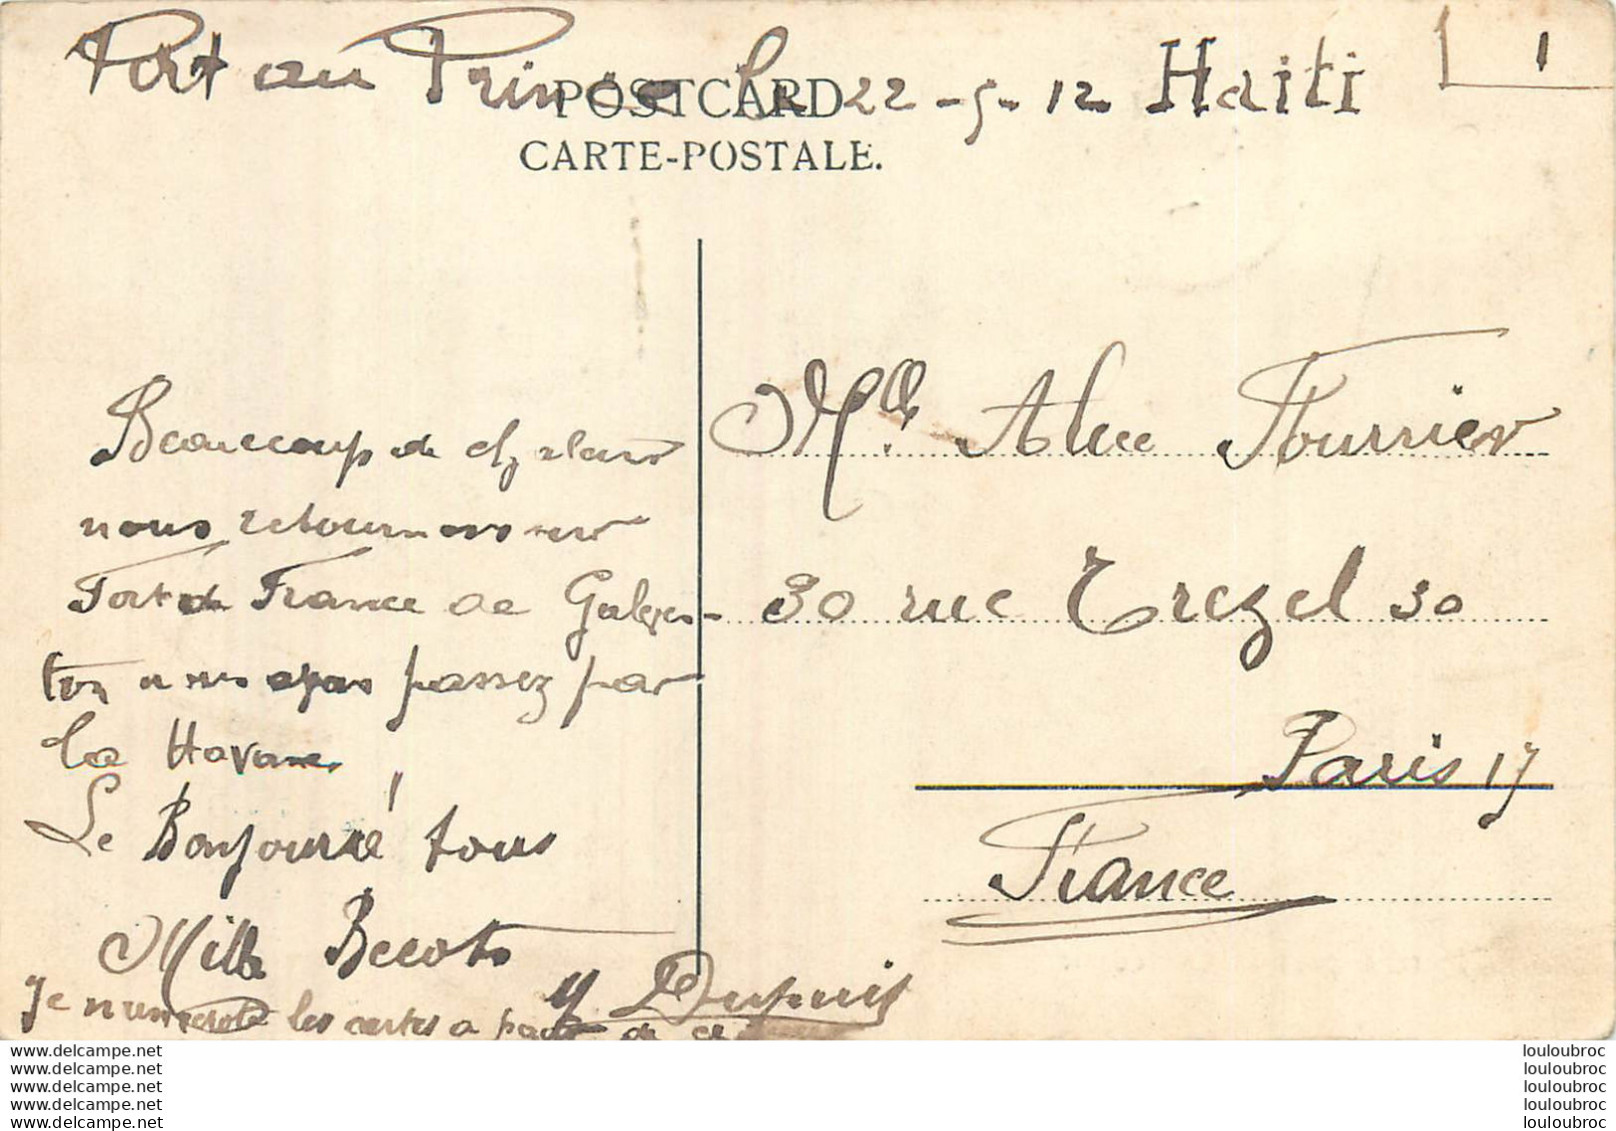 Port au Prince le 22-5-12 Haiti
1
POSTCARD
CARTE-POSTALE.
Beaucoup de chaleur
nous retournons sur
Fort de France de Galves-
ton nous avons passez par
la Havane
Le Bonjour à tous
Mille Becots
Y Dupuis
Je numerote les cartes a partir de
Mlle Alice Fournier
30 rue Trezel 30
Paris 17
France
www.delcampe.net
www.delcampe.net
www.delcampe.net
www.delcampe.net
www.delcampe.net
louloubroc
louloubroc
louloubroc
louloubroc
louloubroc